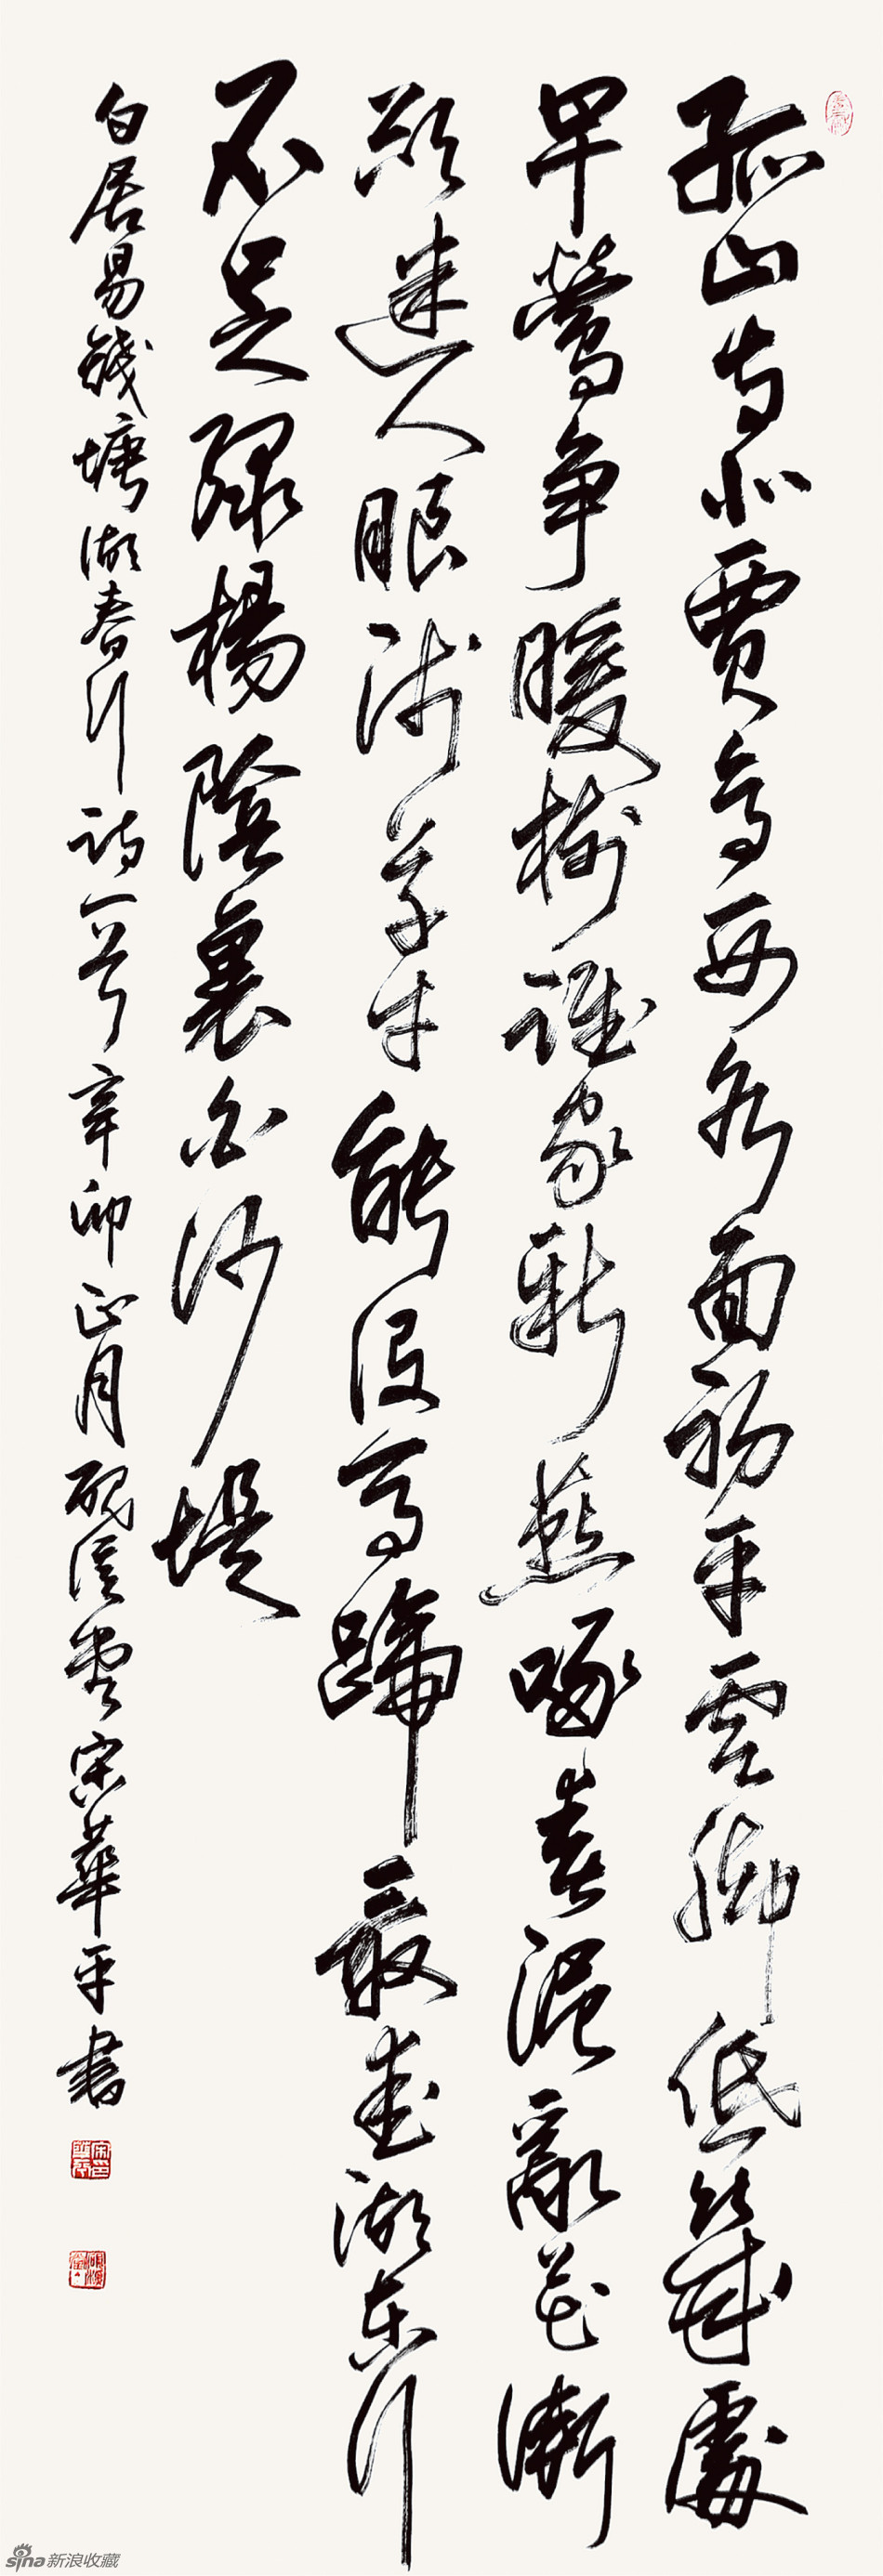 孤山寺北賈亭西水面初平雲脚低幾處
早鶯争暖樹誰家新燕啄春泥亂花漸
欲迷人眼淺草才能没馬蹄最愛湖東行
不足綠楊陰裏白沙堤
白居易錢塘湖春行詩一首辛卯正月宋華平書
sina新浪收藏